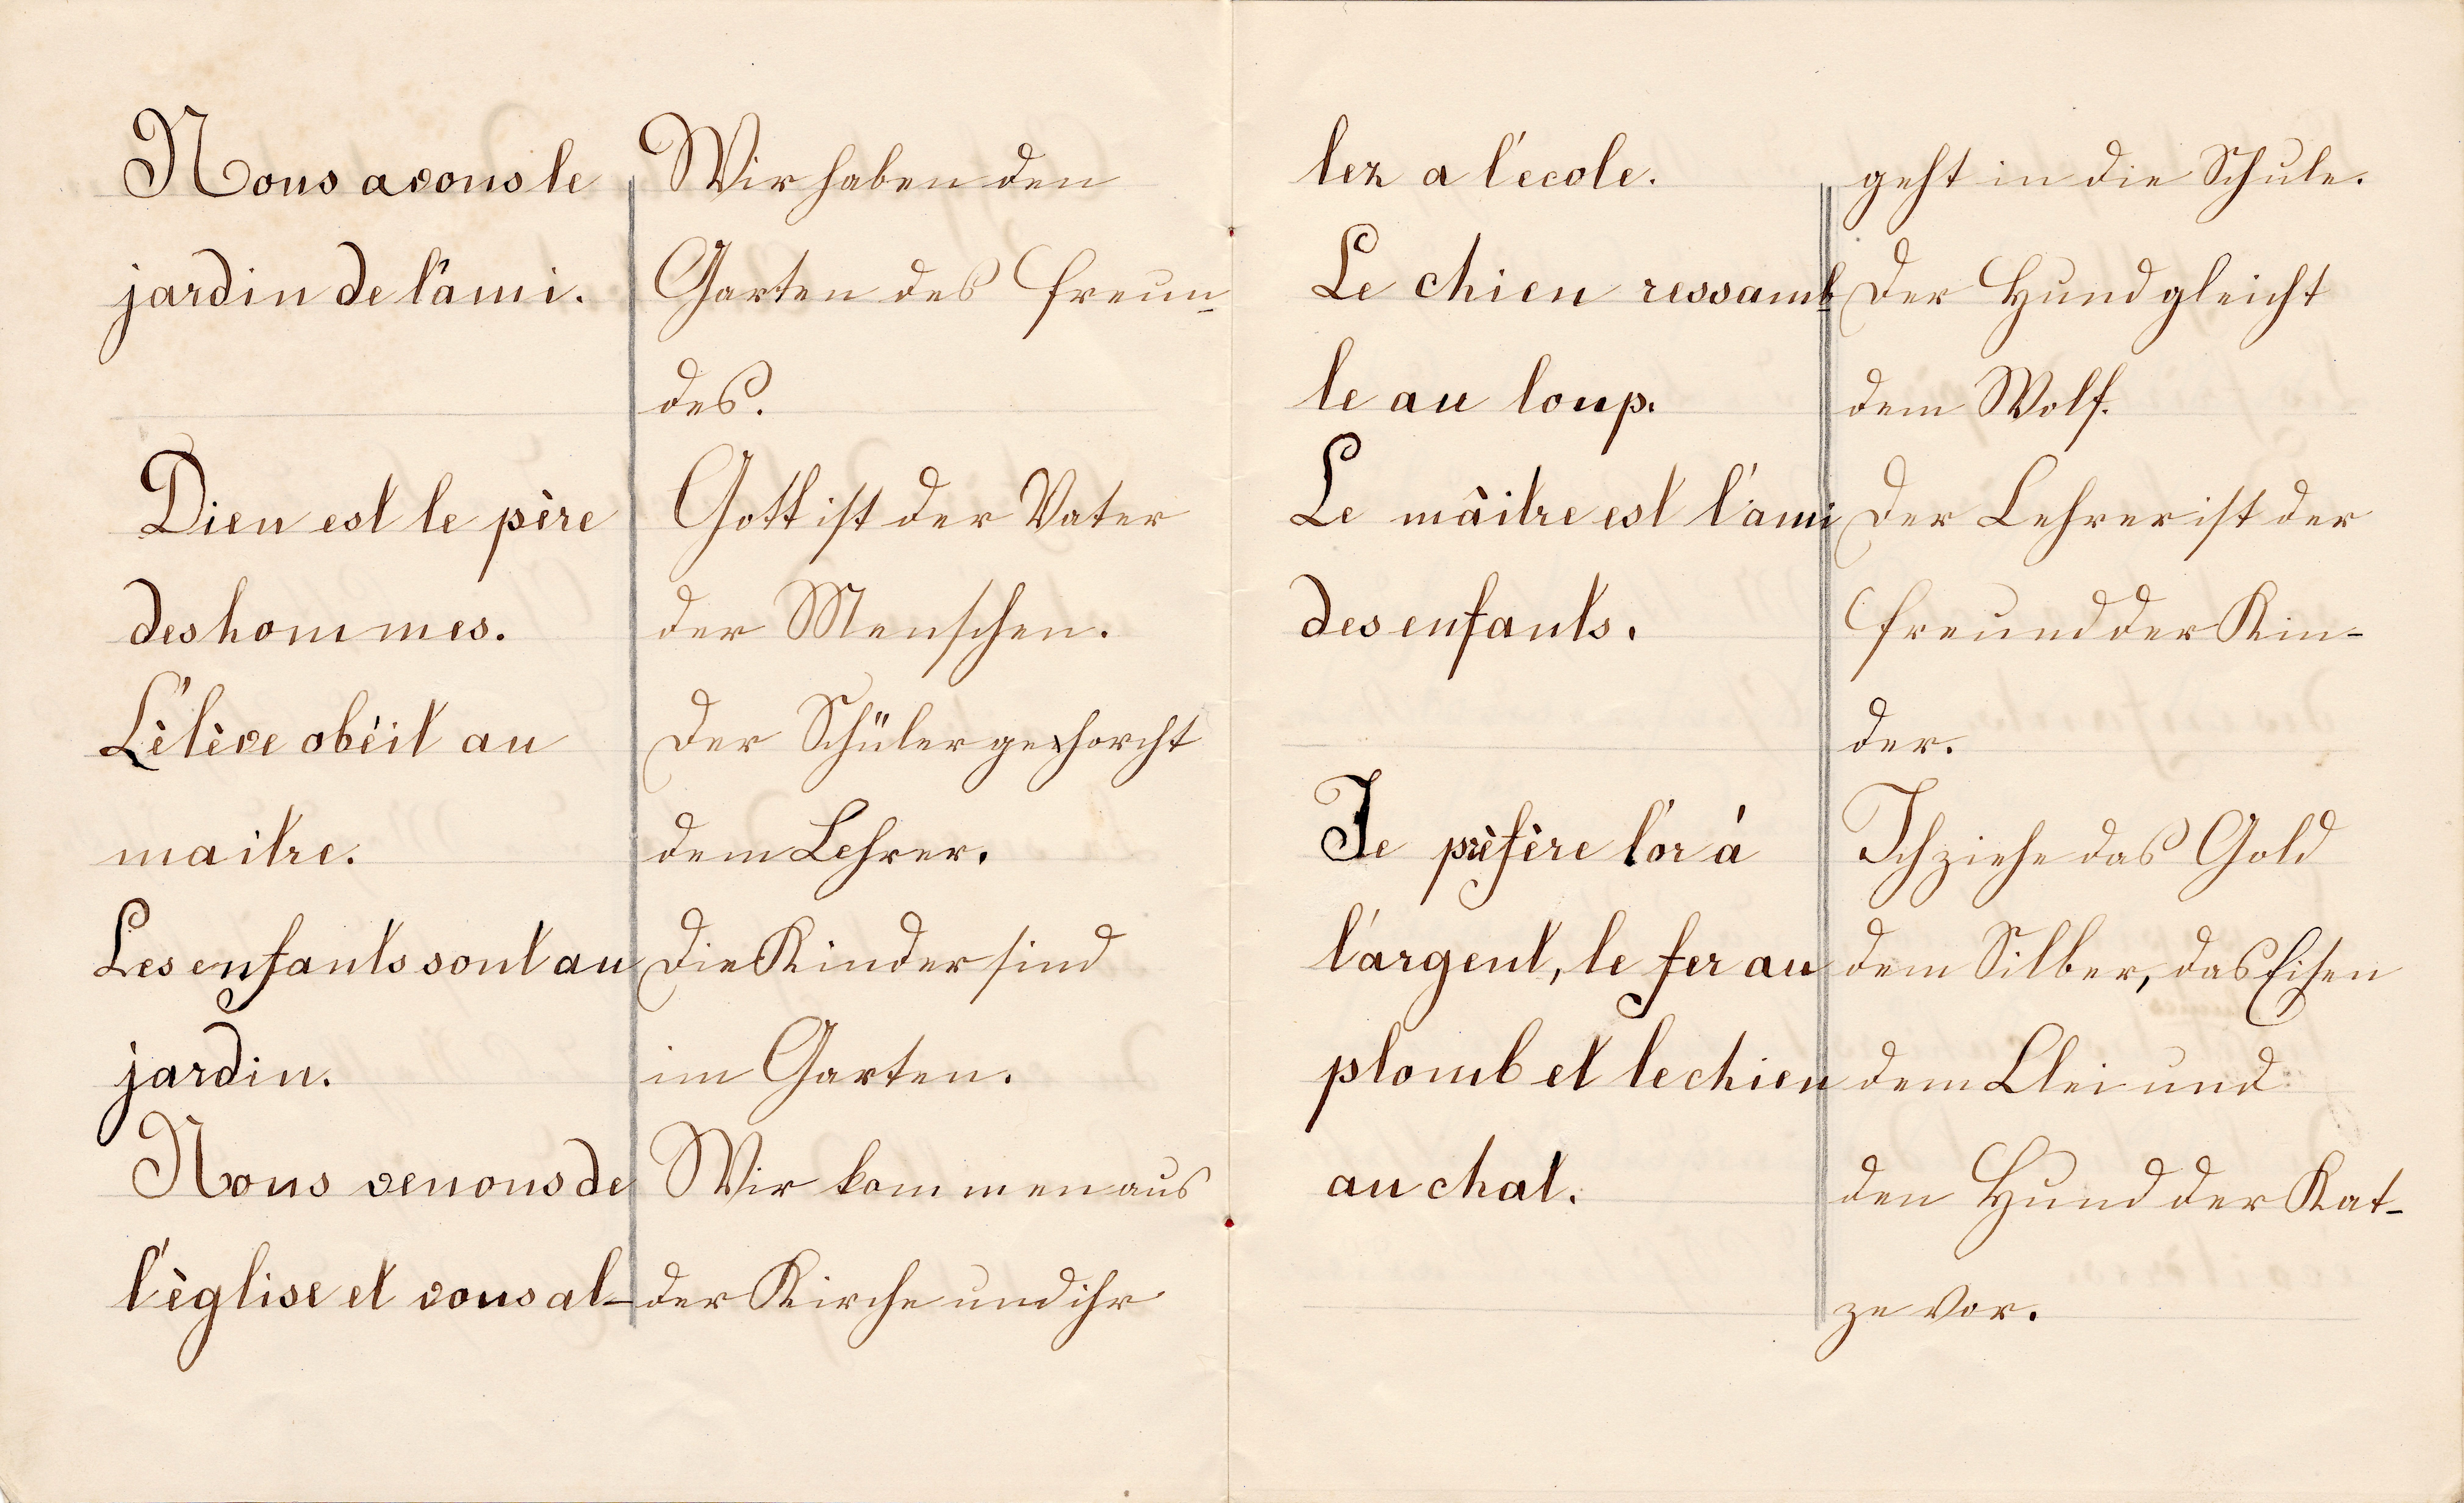 Nous avons le
jardin de l'ami.
Dieu est le père
des hommes.
L'èlève obèit au
maitre.
Les enfants sont au
jardin.
Nous venons de
l'èglise et vous al-
Wir haben den
Garten des Freun-
des.
Gott ist der Vater
der Menschen.
Der Schüler gehorcht
dem Lehrer.
Die Kinder sind
im Garten.
Wir kommen aus
der Kirche und ihr
lez a l'ecole.
Le chien ressamb-
le au loup.
Le mâitre est l'ami
des enfants.
Je prèfère l'or á
l'argent, le fer au
plomb et le chien
au chat.
geht in die Schule.
Der Hund gleicht
dem Wolf.
Der Lehrer ist der
Freund der Kin-
der.
Ich ziehe das Gold
dem Silber, das Eisen
dem Blei und
den Hund der Kat-
ze vor.